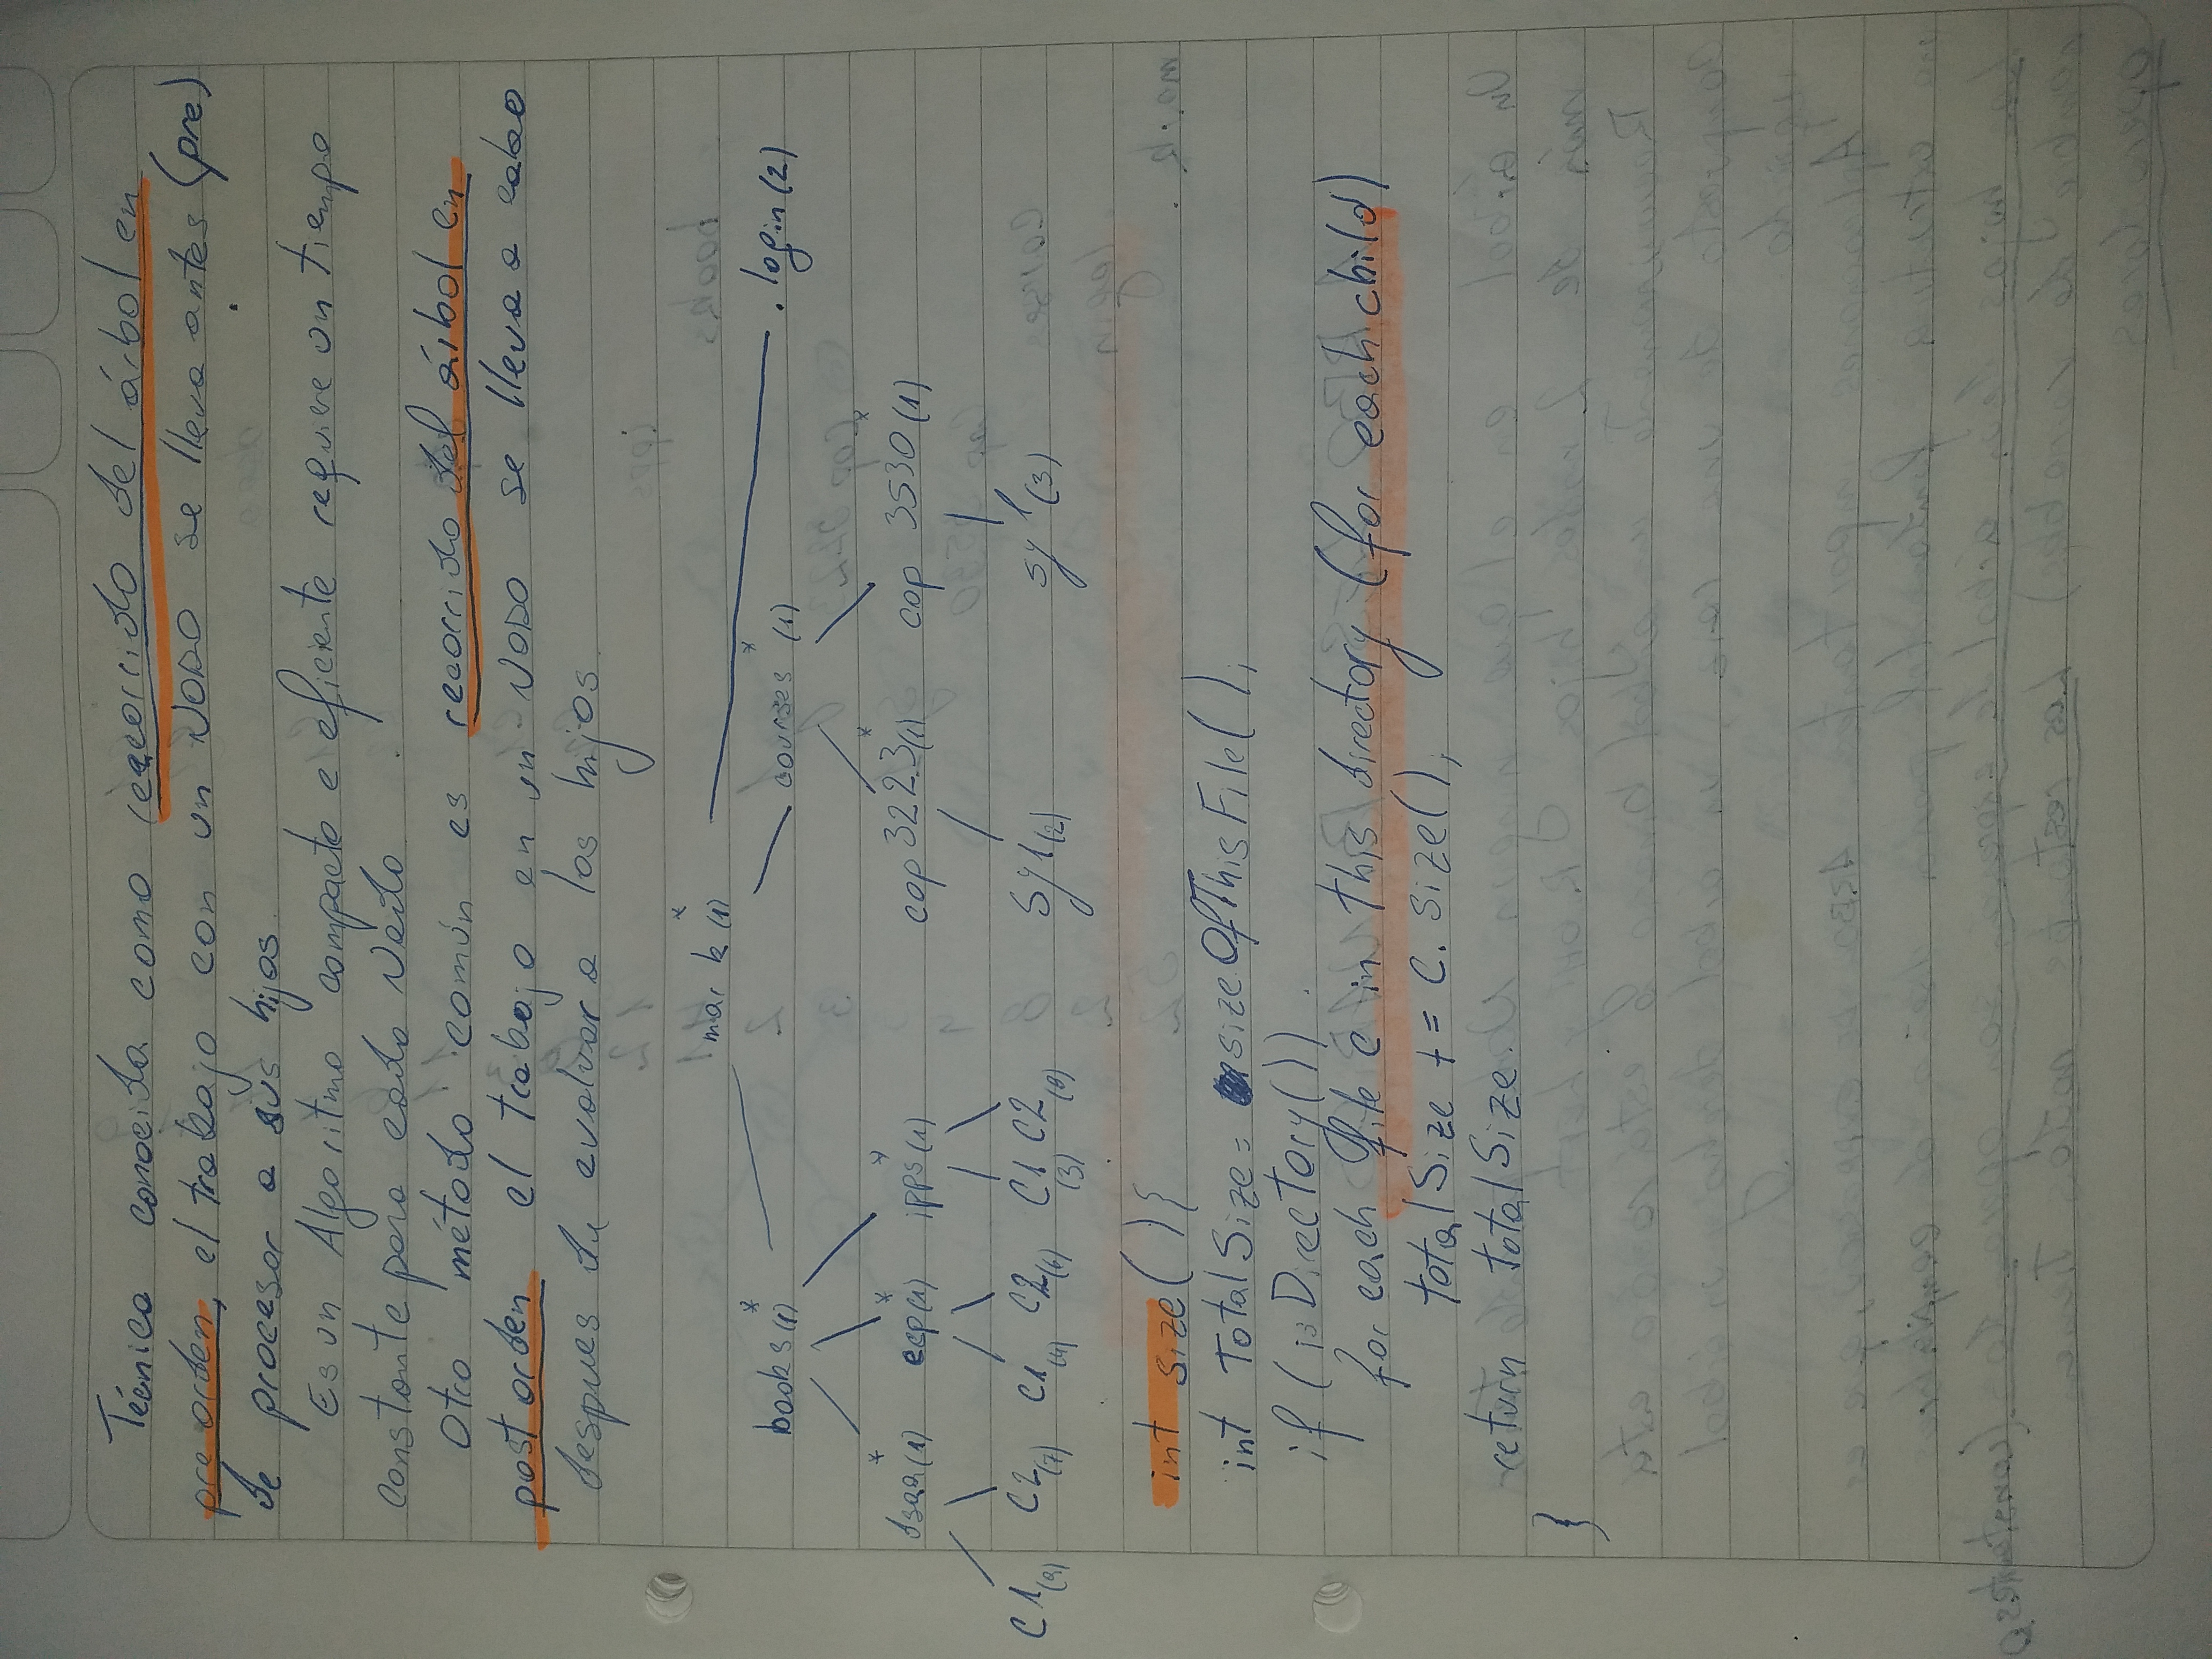 Técnica conocida como recorrido del árbol en
pre orden, el trabajo con un NODO se lleva antes (pre)
de procesar a sus hijos.
Es un Algoritmo compacto e eficiente requiere un tiempo
constante para cada Nodo
Otro método común es recorrido del árbol en
post orden el trabajo en un NODO se lleva a cabo
despues de evaluar a los hijos.
mark (1) *
books (1) * courses * (1) .login (2)
dsaa (1) * ecp (1) * ipps (1) * cop 3223 (1) * cop 3530 (1) *
C1 (9) C2 (7) C1 (4) C2 (6) C1 (3) C2 (8) Sy1 (2) sy1 (3)
int size ( ) {
int TotalSize = sizeOfThisFile ( ) ;
if ( isDirectory ( ) )
for each file c in this directory (for each child)
totalSize += C. size ( ) ;
return totalSize.
}